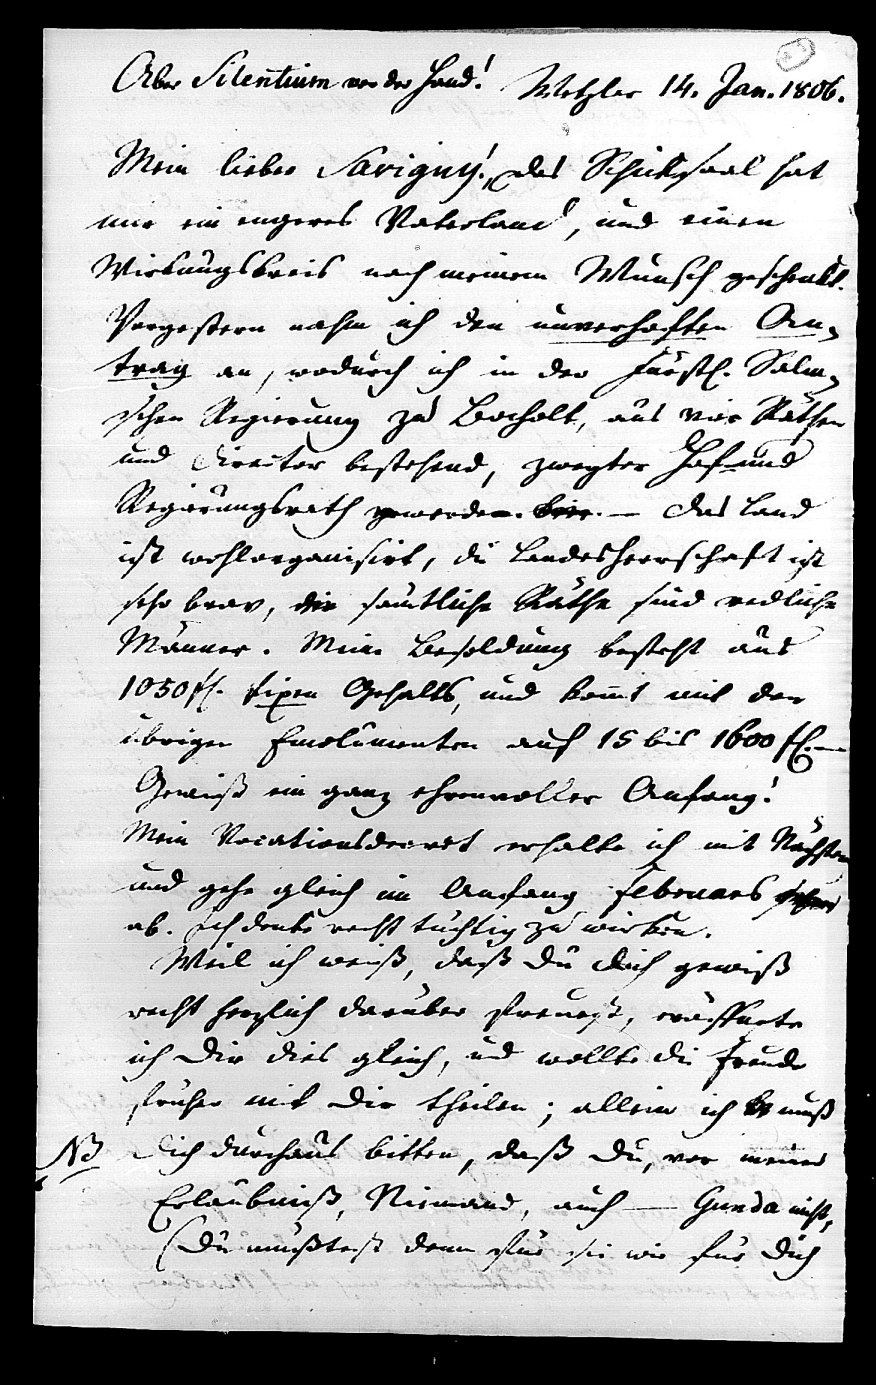 Aber Silentium vor der Hand! Wetzlar 14. Jan. 1806.
Mein lieber Savigny!, das Schicksaal hat
mir ein engeres Vaterland, und einen
Wirkungskreis nach meinem Wunsch geschenkt.
Vorgestern nahm ich den unverhofften An-
trag an, wodurch ich in der Fürstl. Salm-
schen Regierung zu Bocholt, aus vier Räthen
und Director bestehend, zweyter Hof und
Regierungsrath geworden bin. — Das Land
ist wohlorganisirt, die Landesherrschaft ist
sehr brav, die sämtliche Räthe sind redliche
Männer. Meine Besoldung besteht aus
1050 fl. fixen Gehalts, und kom̄t mit den
übrigen Emolumenten auf 15 bis 1600 fl. —
Gewiß ein ganz ehrenvoller Anfang!
Mein Vocationsdecret erhalte ich mit Nächstem
und gehe gleich im Anfang Februars
ab. Ich denke recht tüchtig zu wirken.
Weil ich weiß, daß du dich gewiß
recht herzlich darüber freuest, eröffnete
ich Dir dies gleich, und wollte die Freude
früher mit Dir theilen; allein ich muß
NB Dich durchaus bitten, daß Du, vor meiner
Erlaubniß, Niemand, auch — Gunda nicht,
(Du müßtest denn für sie wie für Dich